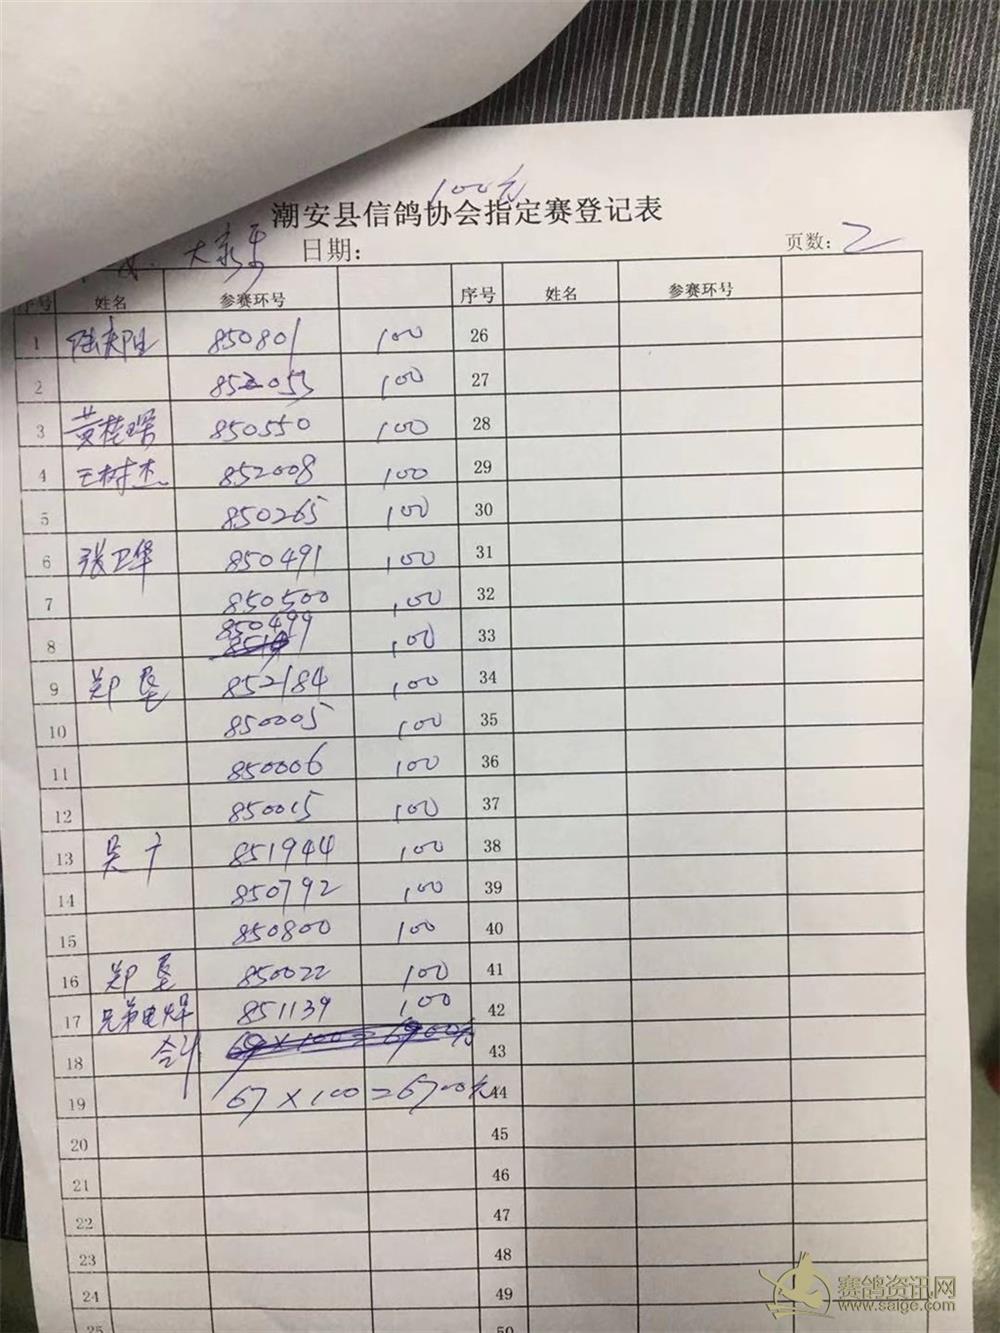 100元
潮安县信鸽协会指定赛登记表
大家乐 日期： 页数：2
序号 姓名 参赛环号 序号 姓名 参赛环号
1 850801 100 26
2 852053 100 27
3 黄桂琛 850550 100 28
4 王树杰 852008 100 29
5 850265 100 30
6 张卫华 850491 100 31
7 850500 100 32
8 850499 100 33
9 郑恳 852184 100 34
10 850005 100 35
11 850006 100 36
12 850015 100 37
13 吴广 851944 100 38
14 850792 100 39
15 850800 100 40
16 郑恳 850022 100 41
17 兄弟电焊 851139 100 42
18 合计 69×100=6900元 43
19 67×100=6700元 44
20 45
21 46
22 47
23 48
24 49
25 50
赛鸽资讯网
www.saige.com